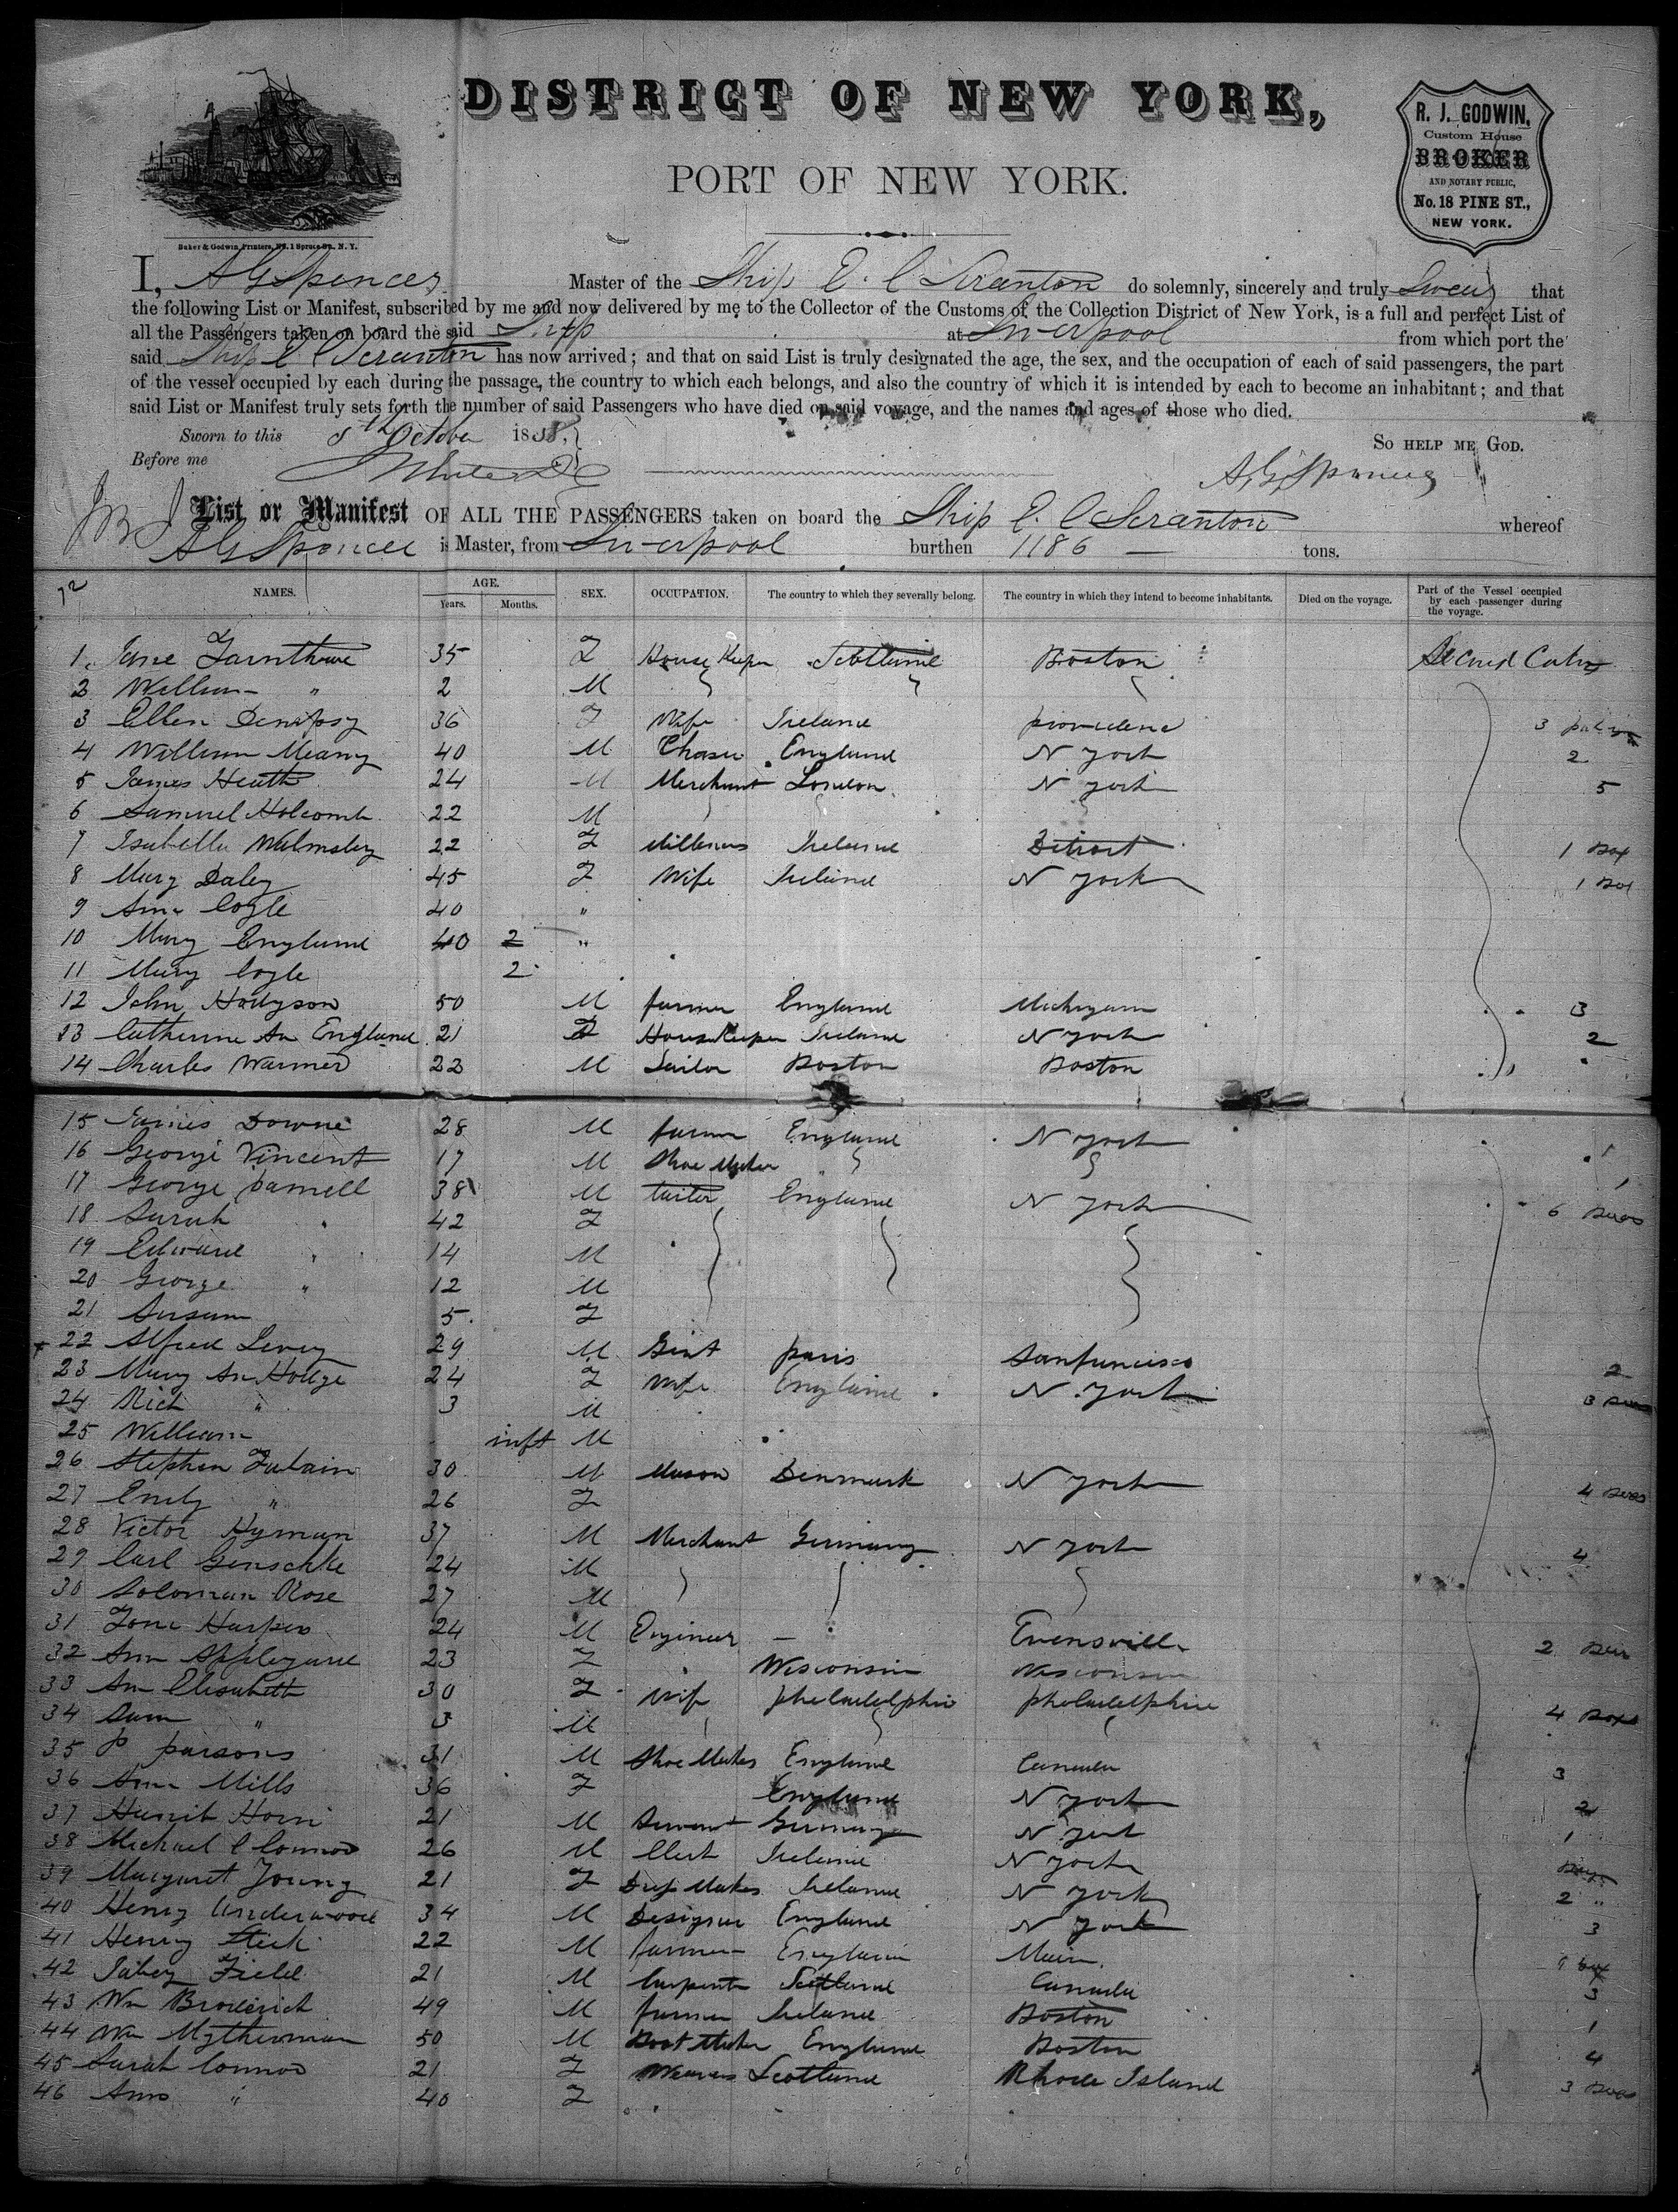 DISTRICT OF NEW YORK,
PORT OF NEW YORK.
R. J. GODWIN,
Custom House
BROKER
AND NOTARY PUBLIC,
No. 18 PINE ST.,
NEW YORK.
Baker & Godwin, Printers, No. 1 Spruce St. N. Y.
I, A G Spencer Master of the Ship E. C Scranton do solemnly, sincerely and truly Swear that
the following List or Manifest, subscribed by me and now delivered by me to the Collector of the Customs of the Collection District of New York, is a full and perfect List of
all the Passengers taken on board the said Ship at Liverpool from which port the
said Ship E C Scranton has now arrived; and that on said List is truly designated the age, the sex, and the occupation of each of said passengers, the part
of the vessel occupied by each during the passage, the country to which each belongs, and also the country of which it is intended by each to become an inhabitant; and that
said List or Manifest truly sets forth the number of said Passengers who have died on said voyage, and the names and ages of those who died.
Sworn to this 8th October 1858, SO HELP ME GOD.
Before me A G Spencer
List or Manifest OF ALL THE PASSENGERS taken on board the Ship E. C Scranton whereof
A G Spencer is Master, from Liverpool burthen 1186 tons.
NAMES. AGE. Years. Months. SEX. OCCUPATION. The country to which they severally belong. The country in which they intend to become inhabitants. Died on the voyage. Part of the Vessel occupied by each passenger during the voyage.
1. Jane 35 F House Keeper Scotland Boston Second Cabin
2 William " 2 M
3 Ellen Dempsy 36 F Wife Ireland providence 3
4 William Meany 40 M England N York 2
5 James Heath 24 M Merchant London N York 5
6 Samuel Holcomb 22 M
7 Isabella Walmsley 22 F Milliner Ireland Detroit 1 Box
8 Mary Daley 45 F Wife Ireland N York 1 Box
9 Ann Cogle 40 "
10 Mary England 40 2 "
11 Mary Cogle 2
12 John Hodgson 50 M farmer England Michigan 3
13 Catherine An England 21 F House Keeper Ireland N York 2
14 Charles Warner 22 M Sailor Boston Boston
15 James Downe 28 M farmer England N York 1
16 George Vincent 17 M Shoe Maker 1
17 George parnell 38 M England N York 6 Boxes
18 Sarah " 42 F
19 Edward " 14 M
20 George " 12 M
21 Susan 5 F
22 Alfred Levey 29 M Gent paris Sanfrancisco 2
23 Mary An Hodge 24 F Wife England N. York 3 Boxes
24 Rich " 3 M
25 William inft M
26 Stephen 30 M Mason Denmark N York 4 Boxes
27 Emily " 26 F
28 Victor Hyman 37 M Merchant Germany N York 4
29 Carl Genschke 24 M
30 Soloman Rose 27 M
31 Harper 24 M Engineer — Evensville 2 Box
32 Ann Appleyard 23 F Wisconsin Wisconsin
33 An Elisabeth 30 F Wife pheladelphia pheladelphia 4 Boxes
34 Sam " 3 M
35 P parsons 31 M Shoe Maker England Canada 3
36 Ann Mills 36 F England N York 2
37 Horn 21 M Servant Germany N York 1
38 Michael C Connor 26 M Clerk Ireland N York
39 Margaret Young 21 F Dress Maker Ireland N York 2 "
40 Henry Underwood 34 M Designer England N York 3
41 Henry Steck 22 M farmer England Main 1 box
42 Jabez Field 21 M Carpenter Scotland Canada 3
43 Wm Broderick 49 M farmer Ireland Boston 1
44 Wm Mytherman 50 M Boot Maker England Boston 4
45 Sarah Connor 21 F Weaver Scotland Rhode Island 3 Boxes
46 Ann " 40 F